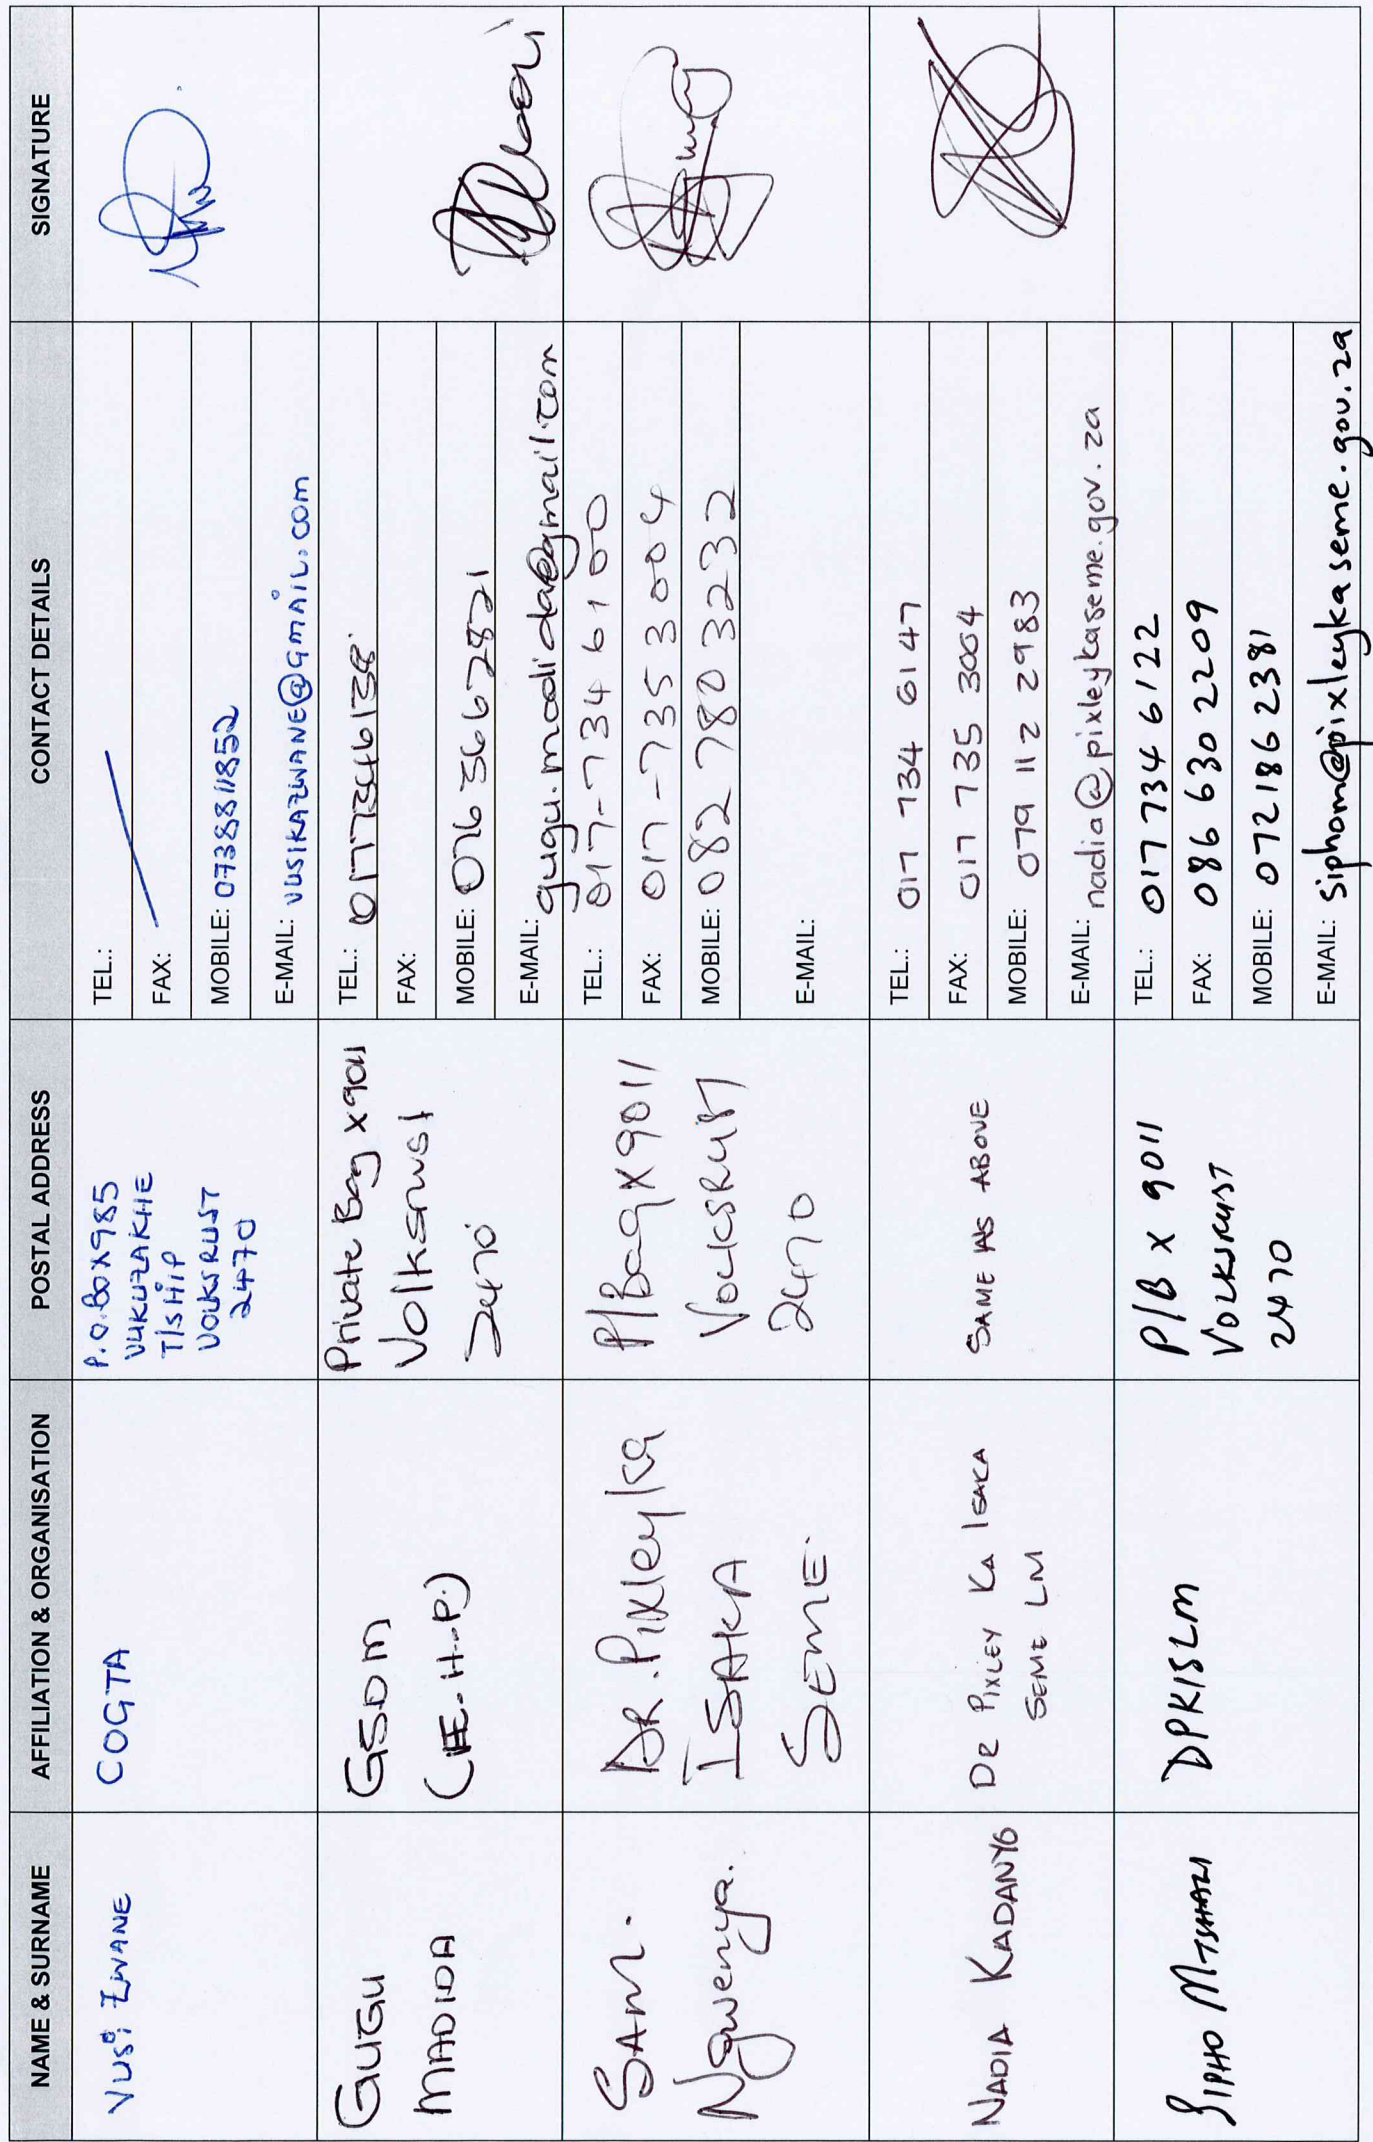 NAME & SURNAME
AFFILIATION & ORGANISATION
POSTAL ADDRESS
CONTACT DETAILS
SIGNATURE
VUSi ZWANE
COGTA
P.O. BOX 985
VUKUZAKHE
T/SHiP
VOLKSRUST
2470
TEL.:
FAX:
MOBILE: 0738811852
E-MAIL: VUSIKAZWANE@GMAiL.COM
GUGU
MADIDA
GSDM
(E.H.P.)
Private Bag X9011
Volksrust
2470
TEL.: 0177346138
FAX:
MOBILE: 076 3667821
E-MAIL: gugu.madida@gmail.com
SAM.
Ngwenya.
DR. Pixley Ka
ISAKA
SEME.
P/Bag X9011
VOLKSRUST
2470
TEL.: 017-734 6100
FAX: 017-735 3004
MOBILE: 082 780 3232
E-MAIL:
NADIA KADANYO
DR PIXLEY Ka ISAKA
SEME LM
SAME AS ABOVE
TEL.: 017 734 6147
FAX: 017 735 3004
MOBILE: 079 112 2983
E-MAIL: nadia@pixleykaseme.gov.za
SIPHO MTSHALI
DPKISLM
P/B X 9011
VOLKSRUST
2470
TEL.: 017 734 6122
FAX: 086 630 2209
MOBILE: 072 186 2381
E-MAIL: Siphom@pixleykaseme.gov.za